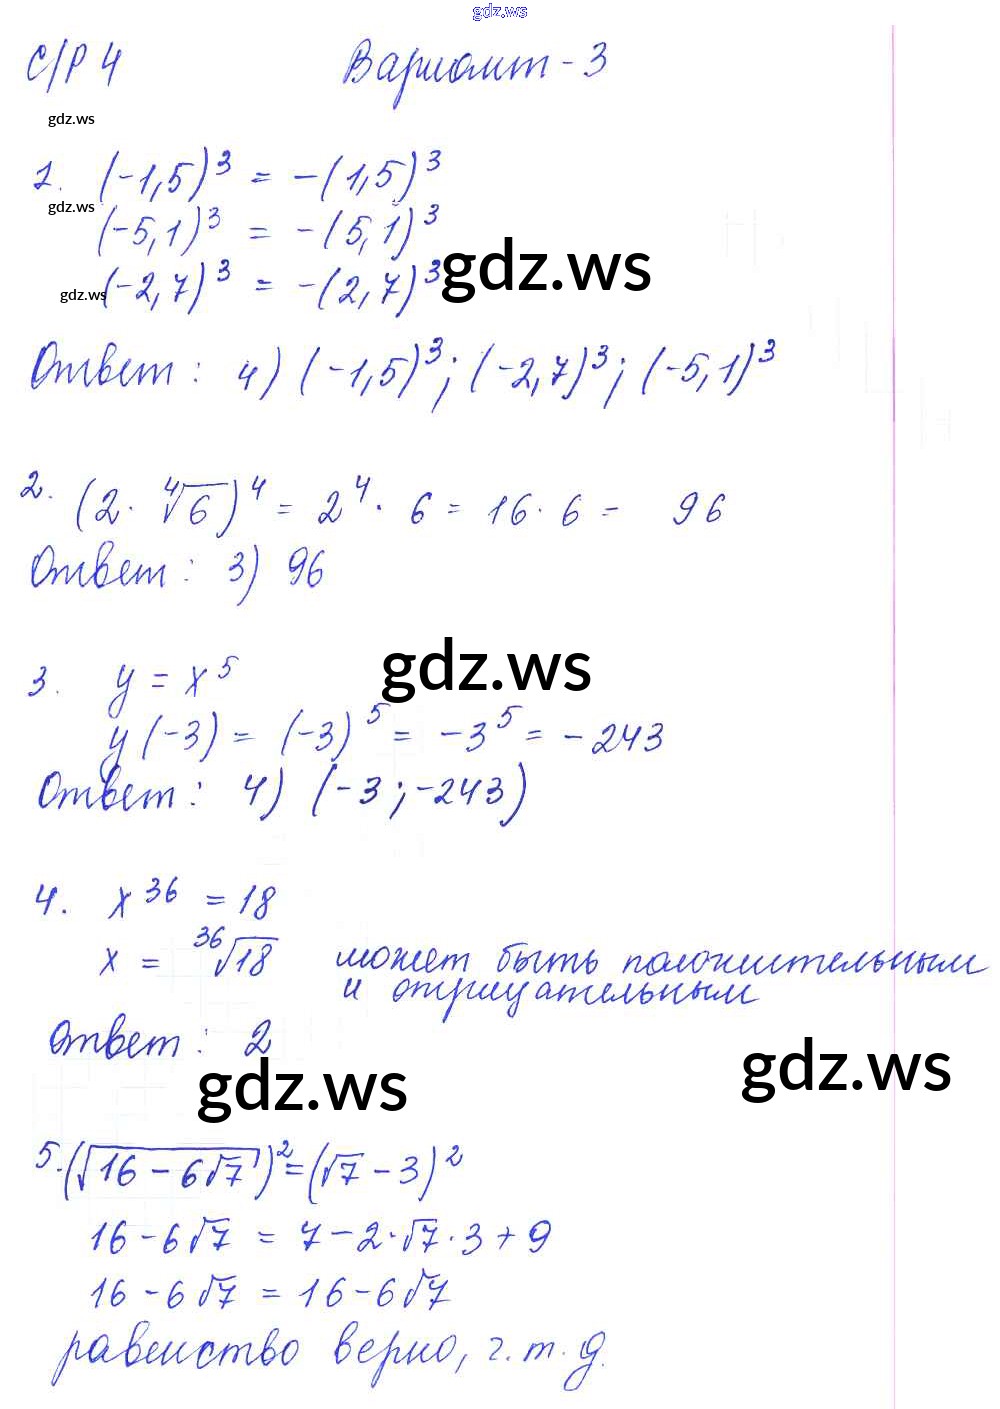 gdz.ws
С/Р 4 Вариант - 3
gdz.ws
1. (-1,5)³ = -(1,5)³
gdz.ws
(-5,1)³ = -(5,1)³
gdz.ws
(-2,7)³ = -(2,7)³
gdz.ws
Ответ: 4) (-1,5)³; (-2,7)³; (-5,1)³
2. (2 · ⁴√6)⁴ = 2⁴ · 6 = 16 · 6 = 96
Ответ: 3) 96
gdz.ws
3. y = x⁵
y(-3) = (-3)⁵ = -3⁵ = -243
Ответ: 4) (-3; -243)
4. x³⁶ = 18
x = ³⁶√18 может быть положительным
и отрицательным
Ответ: 2
gdz.ws
gdz.ws
5. (√(16 - 6√7))² = (√7 - 3)²
16 - 6√7 = 7 - 2·√7·3 + 9
16 - 6√7 = 16 - 6√7
равенство верно, ч.т.д.